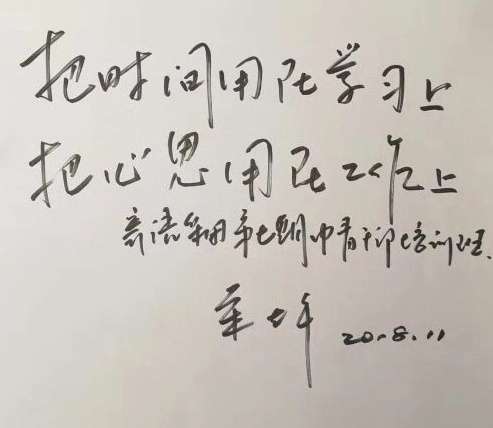 把时间用在学习上
把心思用在工作上
寄语 第七期中青干部培训班.
20.8.11